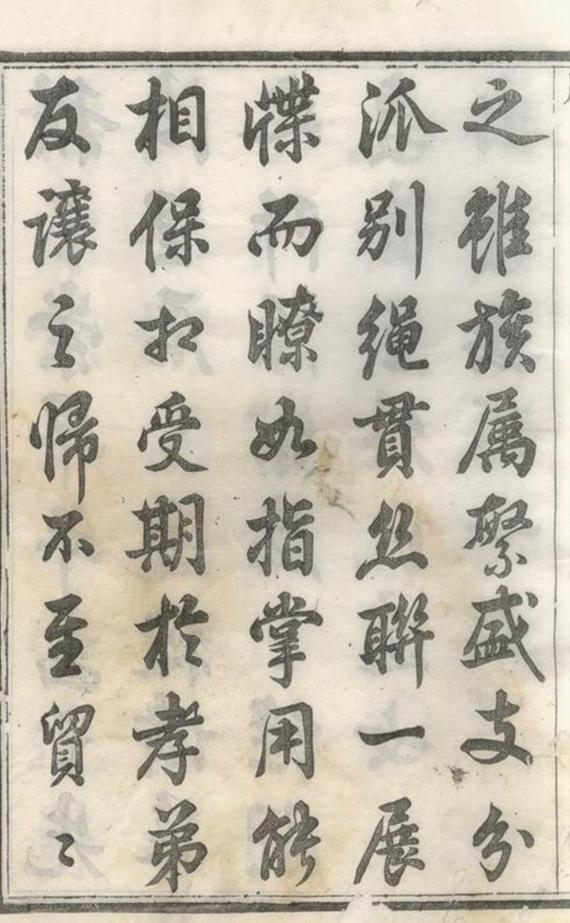 之雖族属繁盛支分
派别绳貫丝聯一展
牒而瞭如指掌用能
相保相受期於孝弟
友讓之帰不至貿〻